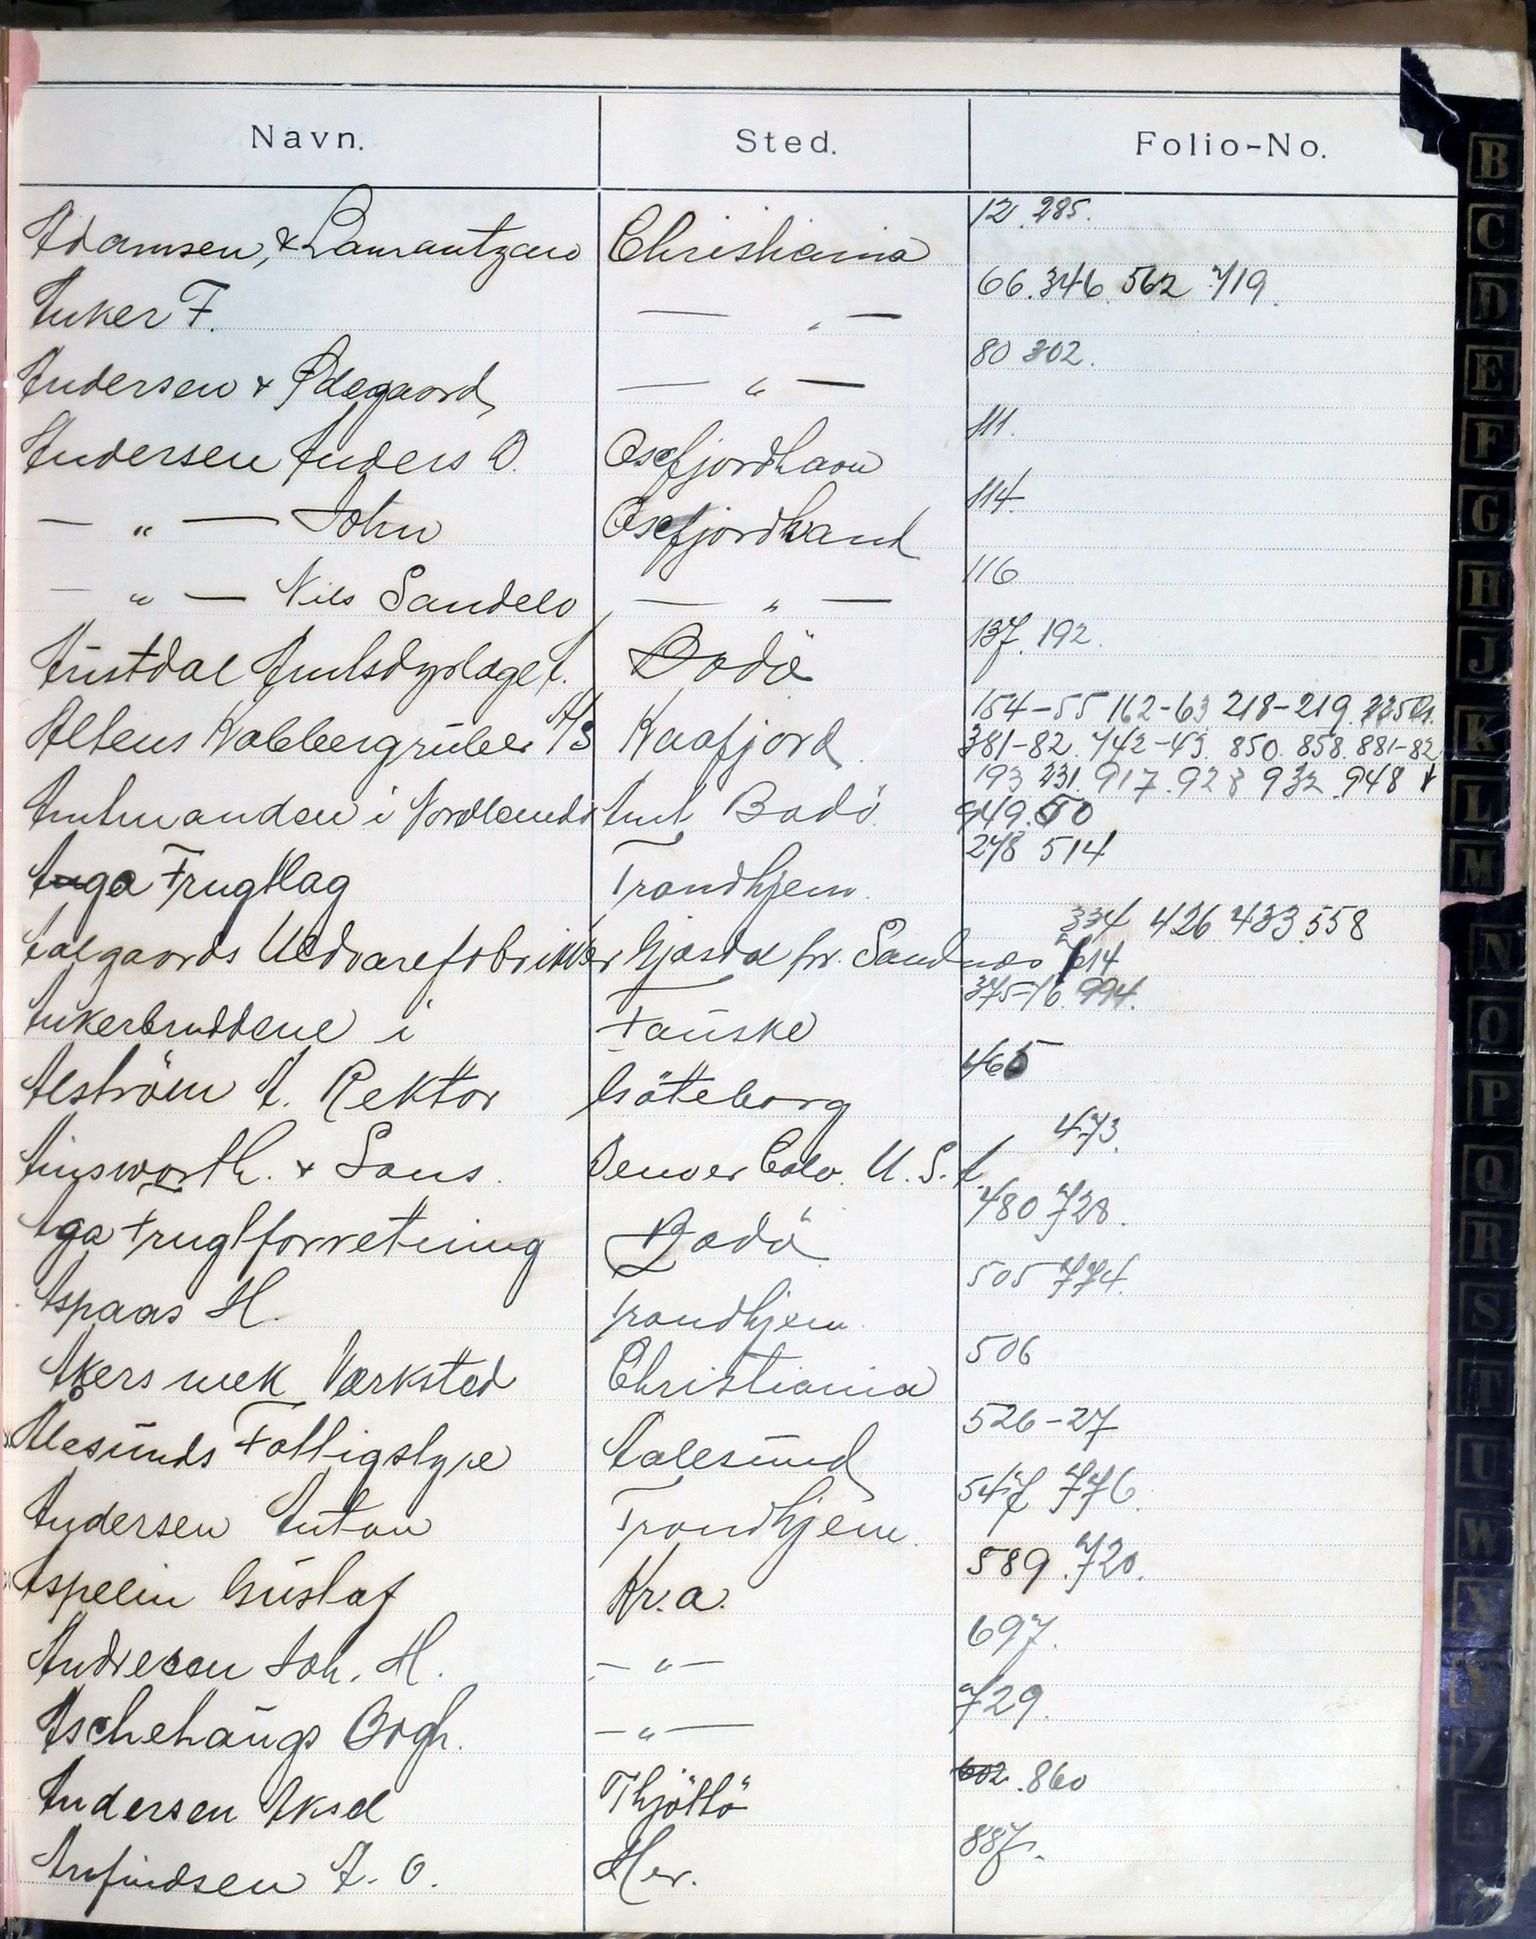 Navn. Sted. Folio-No.
Adamsen, & Christiania 12. 285.
Anker F. — „ — 66. 346. 562 719.
Andersen & Ødegaard — „ — 80 302.
Andersen Anders O. Osefjordhavn 111.
— „ — John Osefjordhavn 114.
— „ — Nils Sandelv — „ — 116
Amtsdyrlæget. Bodö 137. 192.
Altens Kobbergruber A/S Kaafjord 154-55 162-63 218-219.
381-82. 742-43. 850. 858. 881-82
193 231. 917. 928 932. 948
Amtmanden i Nordlands Amt Bodö. 949. 50
Anga Frugtlag Trondhjem. 278 514
334 426 433. 558
Aalgaards Uldvarefabrikker Gjæsdal pr. Sandnes 614
Ankerbruddene i Fauske 375-76 994.
Alström A. Rektor Göteborg 465
Ainsworth. & Sons. Denver Colo. U. S. A. 473.
Aga Frugtforretning Bodö 480 728.
Aspaas H. Trondhjem. 505 774.
Akers mek Værksted Christiania 506
Alesunds Fattigstyre Aalesund 526-27
Andersen Anton Trondhjem. 547 776.
Aspelin Gustaf Kr.a. 589. 720.
Andresen Joh. H. — „ — 697.
Aschehougs Bogh. — „ — 729.
Andersen Aksel Thjöttö 602. 860
Arnfindsen A. O. Her. 887.
B
C
D
E
F
G
H
J
K
L
M
N
O
P
Q
R
S
T
U
W
X
Y
Z